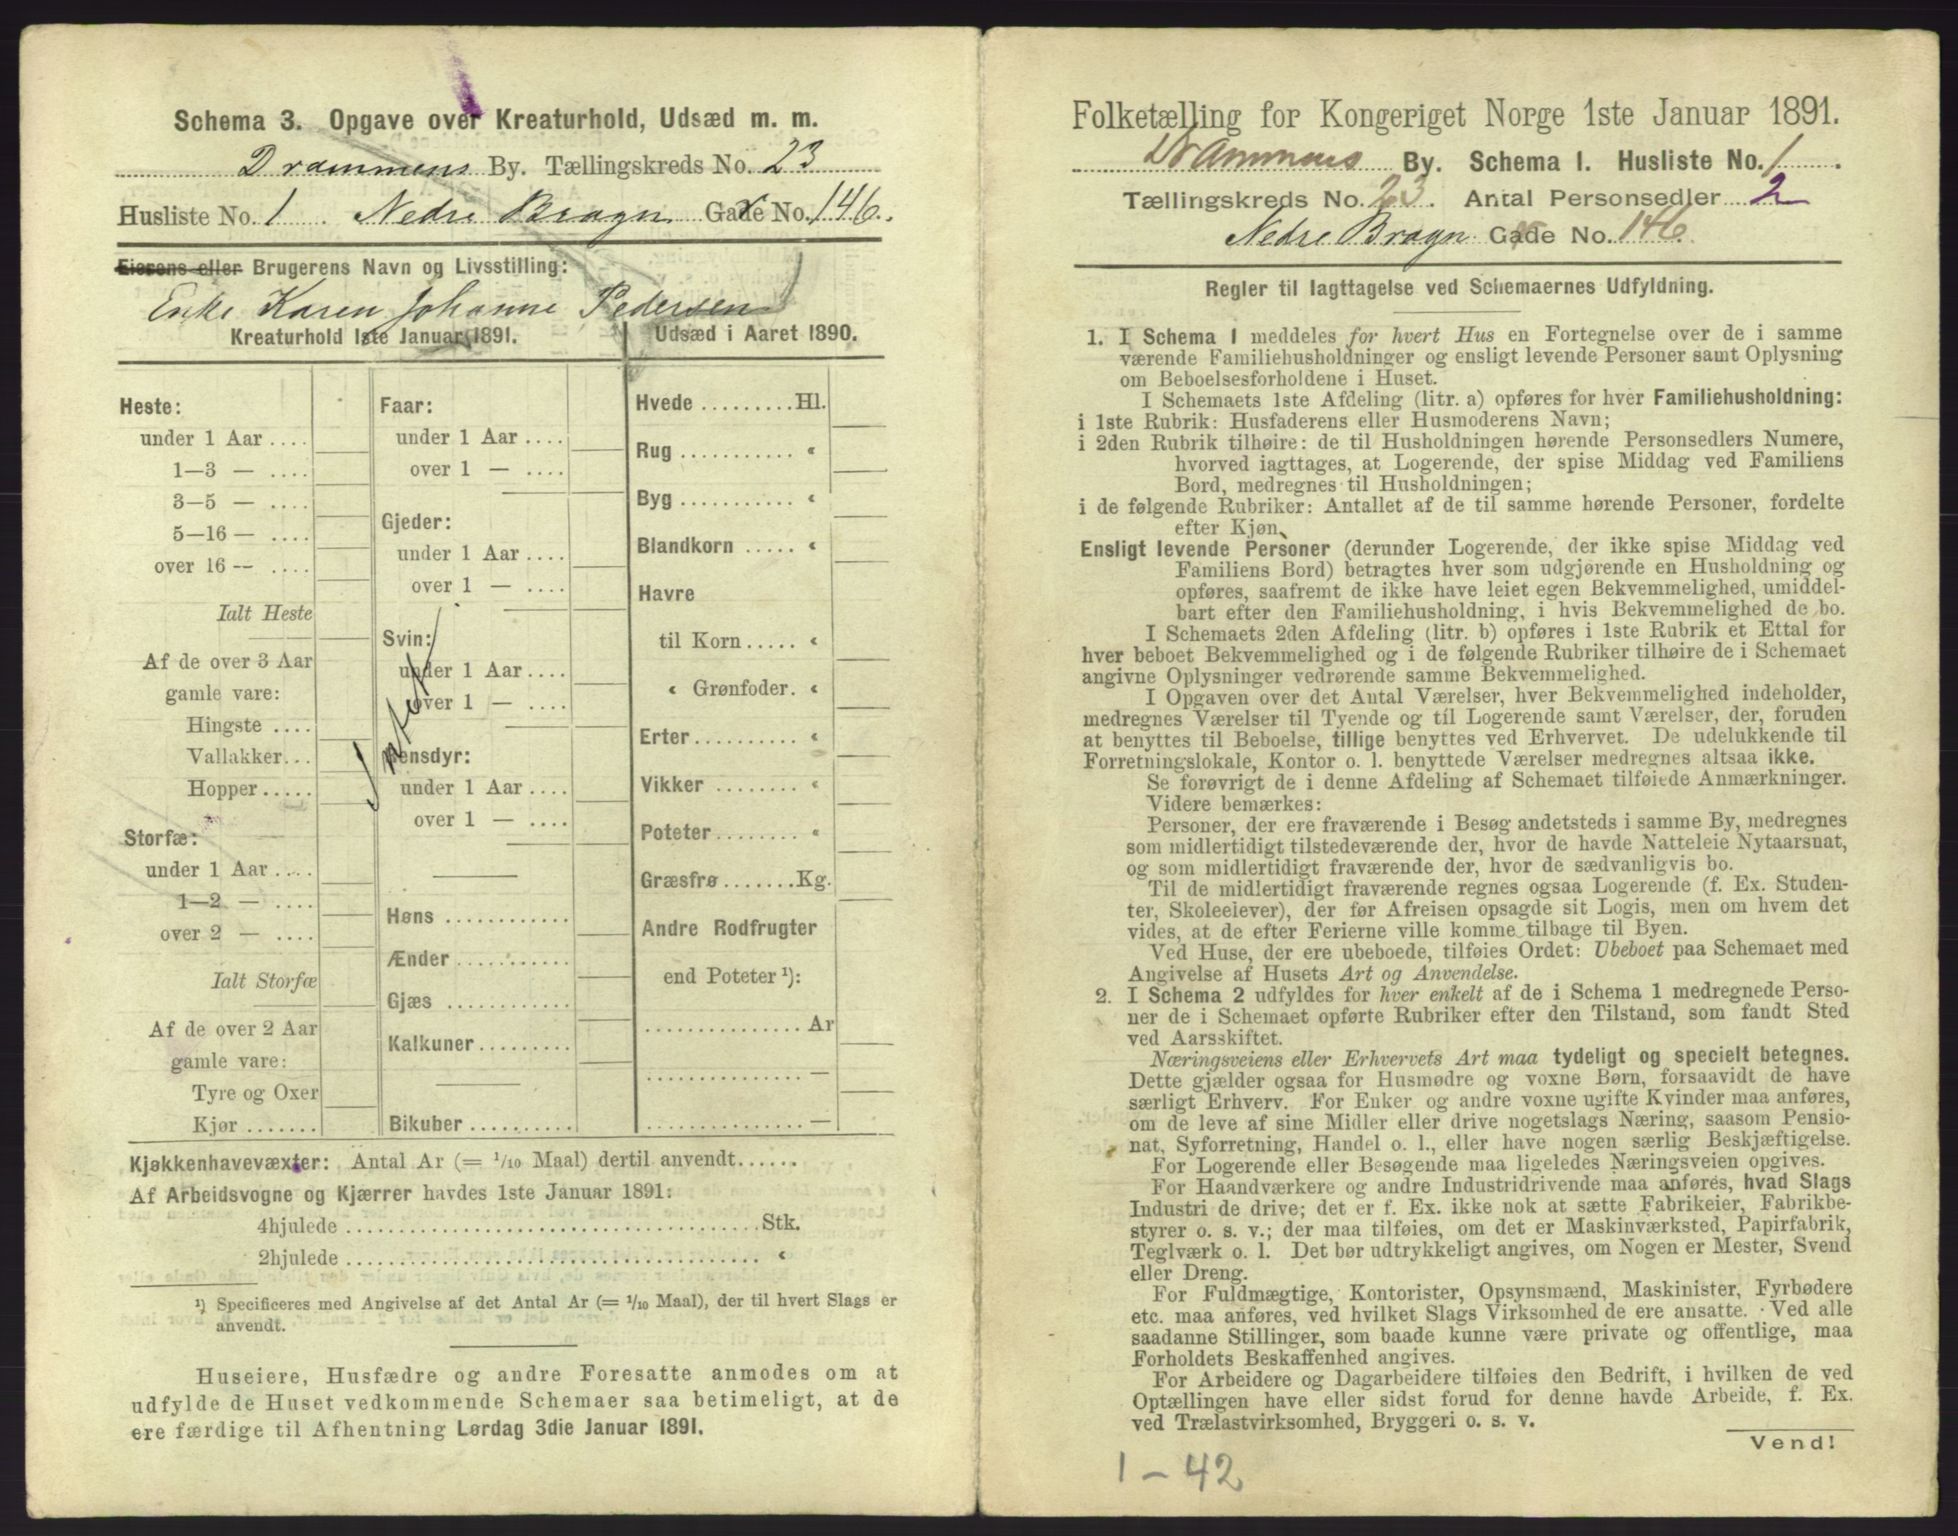 Schema 3. Opgave over Kreaturhold, Udsæd m. m.
Drammens By. Tællingskreds No. 23
Husliste No. 1 Nedre Bragn Gade No. 146.
Eierens eller Brugerens Navn og Livsstilling:
Enke Karen Johanne Pedersen
Kreaturhold 1ste Januar 1891.
Udsæd i Aaret 1890.
Heste:
under 1 Aar ....
1—3 — ....
3—5 — ....
5—16 — ....
over 16 — ....
Ialt Heste
Af de over 3 Aar
gamle vare:
Hingste ....
Vallakker...
Hopper .....
Storfæ:
under 1 Aar ....
1—2 — ....
over 2 — ....
Ialt Storfæ
Af de over 2 Aar
gamle vare:
Tyre og Oxer
Kjør .......
Faar:
under 1 Aar ....
over 1 — ....
Gjeder:
under 1 Aar ....
over 1 — ....
Svin:
under 1 Aar ....
over 1 — ....
Intet
Rensdyr:
under 1 Aar ....
over 1 — ....
Høns ............
Ænder ...........
Gjæs ............
Kalkuner.........
Bikuber ..........
Hvede .........Hl.
Rug ........... "
Byg ........... "
Blandkorn ..... "
Havre
til Korn ..... "
" Grønfoder. "
Erter.......... "
Vikker ........ "
Poteter........ "
Græsfrø .......Kg.
Andre Rodfrugter
end Poteter ¹):
............... Ar
............... —
............... —
Kjøkkenhavevæxter: Antal Ar (= 1/10 Maal) dertil anvendt......
Af Arbeidsvogne og Kjærrer havdes 1ste Januar 1891:
4hjulede ........................................Stk.
2hjulede ........................................ "
¹) Specificeres med Angivelse af det Antal Ar (= 1/10 Maal), der til hvert Slags er
anvendt.
Huseiere, Husfædre og andre Foresatte anmodes om at
udfylde de Huset vedkommende Schemaer saa betimeligt, at de
ere færdige til Afhentning Lørdag 3die Januar 1891.
Folketælling for Kongeriget Norge 1ste Januar 1891.
Drammens By. Schema 1. Husliste No. 1.
Tællingskreds No. 23. Antal Personsedler 2
Nedre Bragn Gade No. 146.
Regler til Iagttagelse ved Schemaernes Udfyldning.
1. I Schema 1 meddeles for hvert Hus en Fortegnelse over de i samme
værende Familiehusholdninger og ensligt levende Personer samt Oplysning
om Beboelsesforholdene i Huset.
I Schemaets 1ste Afdeling (litr. a) opføres for hver Familiehusholdning:
i 1ste Rubrik: Husfaderens eller Husmoderens Navn;
i 2den Rubrik tilhøire: de til Husholdningen hørende Personsedlers Numere,
hvorved iagttages, at Logerende, der spise Middag ved Familiens
Bord, medregnes til Husholdningen;
i de følgende Rubriker: Antallet af de til samme hørende Personer, fordelte
efter Kjøn.
Ensligt levende Personer (derunder Logerende, der ikke spise Middag ved
Familiens Bord) betragtes hver som udgjørende en Husholdning og
opføres, saafremt de ikke have leiet egen Bekvemmelighed, umiddel-
bart efter den Familiehusholdning, i hvis Bekvemmelighed de bo.
I Schemaets 2den Afdeling (litr. b) opføres i 1ste Rubrik et Ettal for
hver beboet Bekvemmelighed og i de følgende Rubriker tilhøire de i Schemaet
angivne Oplysninger vedrørende samme Bekvemmelighed.
I Opgaven over det Antal Værelser, hver Bekvemmelighed indeholder,
medregnes Værelser til Tyende og til Logerende samt Værelser, der, foruden
at benyttes til Beboelse, tillige benyttes ved Erhvervet. De udelukkende til
Forretningslokale, Kontor o. l. benyttede Værelser medregnes altsaa ikke.
Se forøvrigt de i denne Afdeling af Schemaet tilføiede Anmærkninger.
Videre bemærkes:
Personer, der ere fraværende i Besøg andetsteds i samme By, medregnes
som midlertidigt tilstedeværende der, hvor de havde Natteleie Nytaarsnat,
og som midlertidigt fraværende der, hvor de sædvanligvis bo.
Til de midlertidigt fraværende regnes ogsaa Logerende (f. Ex. Studen-
ter, Skoleelever), der før Afreisen opsagde sit Logis, men om hvem det
vides, at de efter Ferierne ville komme tilbage til Byen.
Ved Huse, der ere ubeboede, tilføies Ordet: Ubeboet paa Schemaet med
Angivelse af Husets Art og Anvendelse.
2. I Schema 2 udfyldes for hver enkelt af de i Schema 1 medregnede Perso-
ner de i Schemaet opførte Rubriker efter den Tilstand, som fandt Sted
ved Aarsskiftet.
Næringsveiens eller Erhvervets Art maa tydeligt og specielt betegnes.
Dette gjælder ogsaa for Husmødre og voxne Børn, forsaavidt de have
særligt Erhverv. For Enker og andre voxne ugifte Kvinder maa anføres,
om de leve af sine Midler eller drive nogetslags Næring, saasom Pensio-
nat, Syforretning, Handel o. l., eller have nogen særlig Beskjæftigelse.
For Logerende eller Besøgende maa ligeledes Næringsveien opgives.
For Haandværkere og andre Industridrivende maa anføres, hvad Slags
Industri de drive; det er f. Ex. ikke nok at sætte Fabrikeier, Fabrikbe-
styrer o. s. v.; der maa tilføies, om det er Maskinværksted, Papirfabrik,
Teglværk o. l. Det bør udtrykkeligt angives, om Nogen er Mester, Svend
eller Dreng.
For Fuldmægtige, Kontorister, Opsynsmænd, Maskinister, Fyrbødere
etc. maa anføres, ved hvilket Slags Virksomhed de ere ansatte. Ved alle
saadanne Stillinger, som baade kunne være private og offentlige, maa
Forholdets Beskaffenhed angives.
For Arbeidere og Dagarbeidere tilføies den Bedrift, i hvilken de ved
Optællingen have eller sidst forud for denne havde Arbeide, f. Ex.
ved Trælastvirksomhed, Bryggeri o. s. v.
Vend!
1 – 42